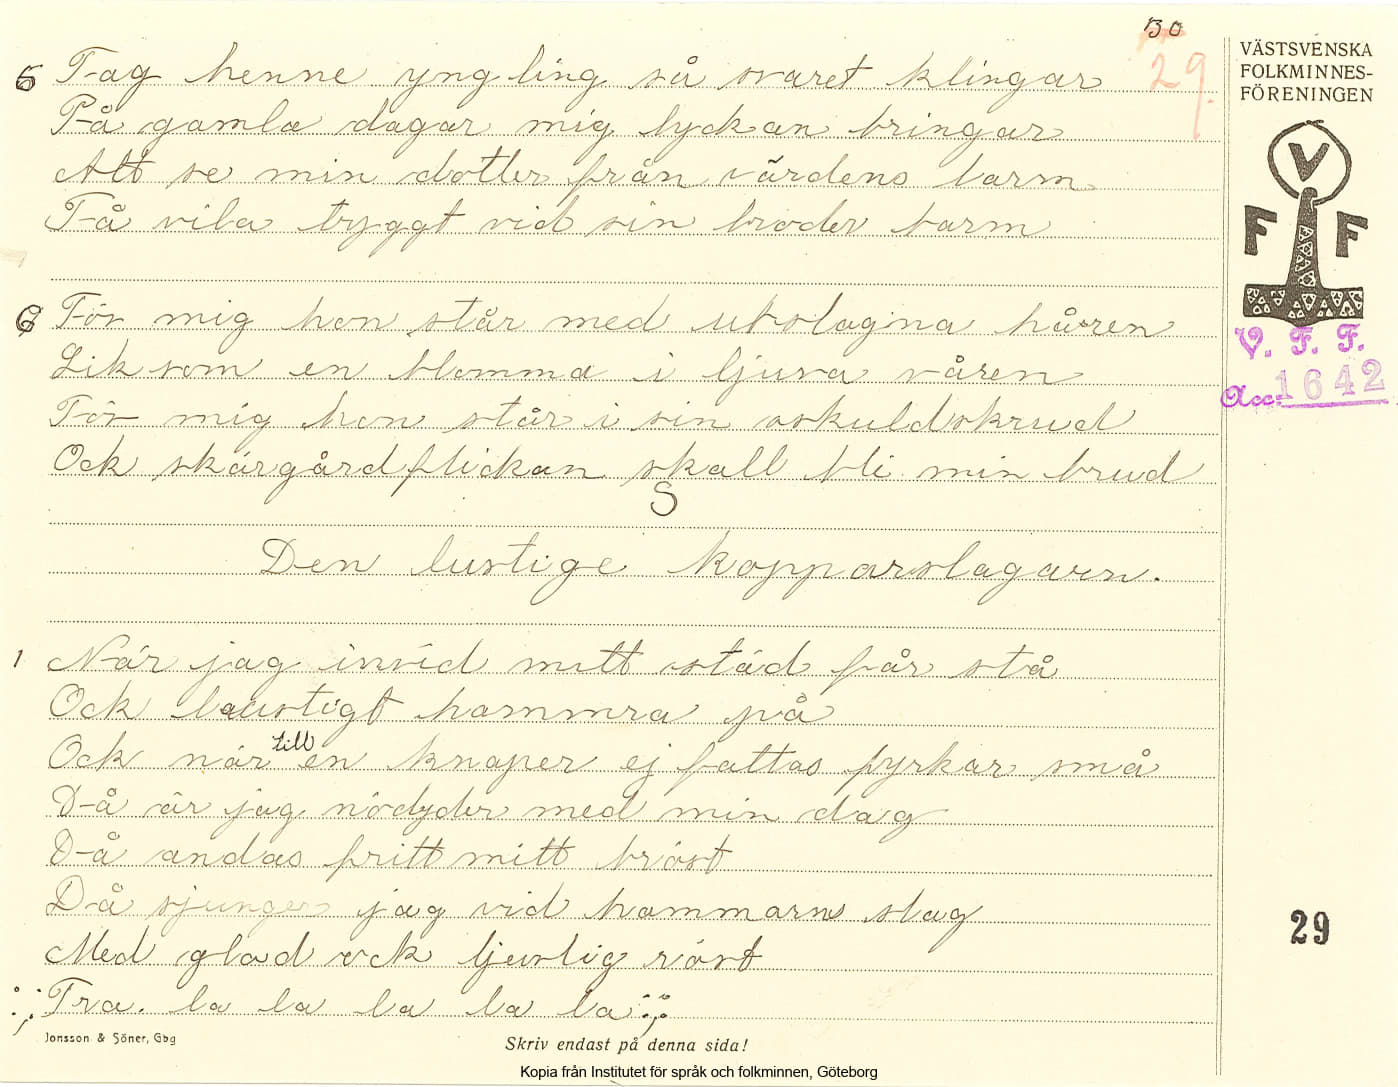 30
29.
VÄSTSVENSKA
FOLKMINNES-
FÖRENINGEN
V
F F
V. F. F.
Acc. 1642
5 Tag henne yngling så svaret klingar
På gamla dagar mig lyckan bringar
Att se min dotter från värdens larm
Få vila tryggt vid sin broder barm
6 För mig hon står med utslagna håren
Lik som en blomma i ljuva våren
För mig hon står i sin oskuldskrud
Ock skärgårdflickan skall bli min brud
S
Den lustige kopparslagarn.
1 När jag invid mitt städ får stå
Ock lustigt hammra på
Ock när till en knaper ej fattas fyrkar små
Då är jag nödyder med min dag
Då andas fritt mitt bröst
Då sjunger jag vid hammarns slag
Med glad ock ljuvlig röst
:,: Tra. la la la la la :,:
29
Jonsson & Söner, Gbg
Skriv endast på denna sida!
Kopia från Institutet för språk och folkminnen, Göteborg